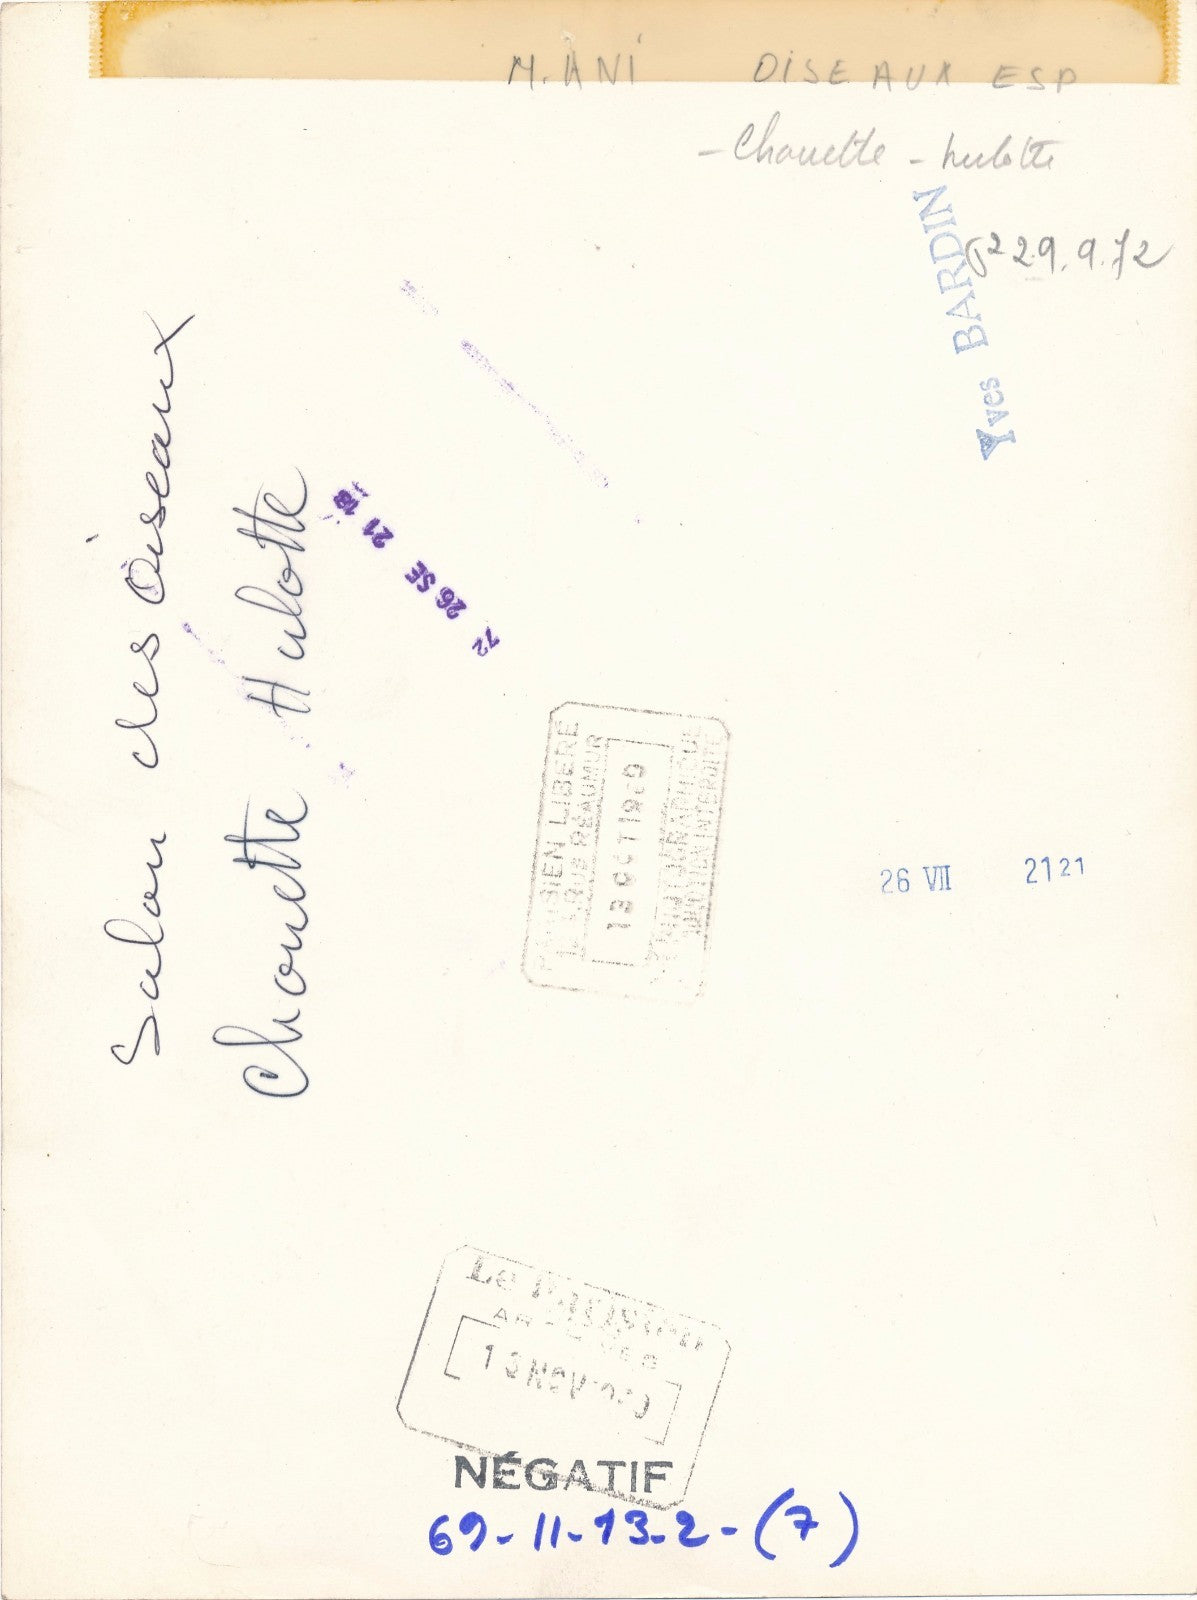 M. ANI OISEAUX ESP
- Chouette - hulotte
Yves BARDIN
29.9.72
Salon des Oiseaux
Chouette Hulotte
72 26 SE 21 18
PARISIEN LIBERE
RUE REAUMUR
13 OCT 1969
INTERDITE
26 VII 21 21
Le Parisien
ARCHIVES
13 NOV
NÉGATIF
69-11-13-2-(7)